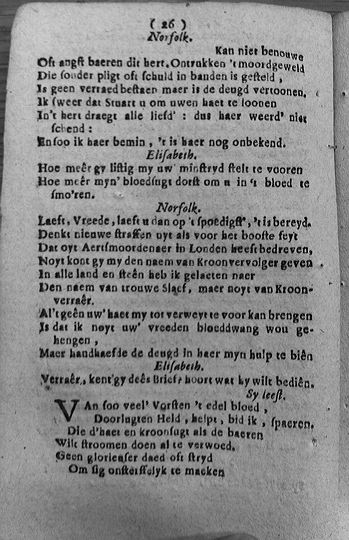 ( 26 )
Norfolk.
Kan niet benouwe
Oft angst baeren dit hert. Ontrukken 't moordgeweld
Die sonder pligt oft schuld in banden is gesteld,
Is geen verraed bestaen maer is de deugd vertoonen.
Ik sweer dat Stuart u om uwen haet te loonen
In't hert draegt alle liefd' : dus haer weerd' niet
schend :
En soo ik haer bemin, 't is haer nog onbekend.
Elisabeth.
Hoe meer gy listig my uw' minstryd stelt te vooren
Hoe meer myn' bloedsugt dorst om u in 't bloed te
smo'ren.
Norfolk.
Laest, Vreede, laest u dan op 't spoedigst', 't is bereyd.
Denkt nieuwe straffen uyt als voor het booste feyt
Dat oyt Aertsmoordenaer in Londen heeft bedreven,
Noyt kont gy my den naem van Kroonvervolger geven
In alle land en steên heb ik gelaeten naer
Den naem van trouwe Slaef, maer noyt van Kroon-
verraêr.
Al't geên uw' haet my tot verweyt te voor kan brengen
Is dat ik noyt uw' vreeden bloeddwang wou ge-
hengen,
Maer handhaefde de deugd in haer myn hulp te biên
Elisabeth.
Verraêr, kent gy deês Brief? hoort wat hy wilt bediên.
Sy leest.
VAn soo veel' Vorsten 't edel bloed,
Doorlugten Held, helpt, bid ik, spaeren,
Die d'haet en kroonsugt als de baeren
Wilt stroomen doen al te verwoed.
Geen glorieuser daed oft stryd
Om sig onsterffelyk te maeken